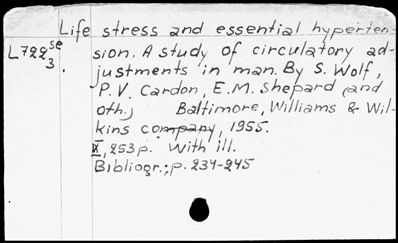 Life stress and essential hyperten-
L722se sion. A study of circulatory ad-
3. justments in man. By S. Wolf,
P.V. Cardon, E.M. Shepard (and
oth.) Baltimore, Williams & Wil-
kins company, 1955.
IX, 253p. With ill.
Bibliogr.: p. 234-245